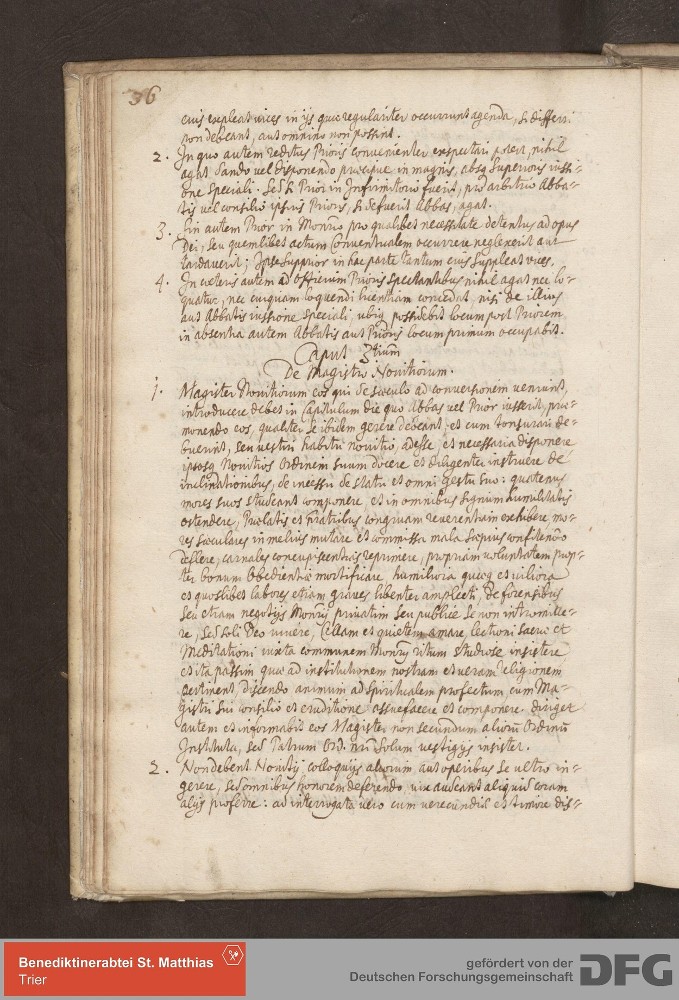 36
eius expleat vices in ijs quae regulariter occurrunt agenda, si differri
non debeant, aut omnino non possint.
2. In quo autem reditus Prioris convenienter exspectari poterit, nihil
agat dando vel disponendo praecipue in magnis, absq Superioris iussi-
one speciali. Sed si Prior in Infirmitorio fuerit, pro arbitrio Abba-
tis vel consilio ipsius Prioris, si defuerit Abbas, agat.
3. Sin autem Prior in Monrio pro qualibet necessitate detentus ad opus
Dei, seu quemlibet actum Conventualem occurrere neglexerit aut
tardaverit; Ipse Supprior in hac parte tantum eius suppleat vices.
4. In caeteris autem ad officium Prioris spectantibus nihil agat nec lo-
quatur, nec cuiquam loquendi licentiam concedat, nisi de illius
aut Abbatis iussione speciali, ubiq possidebit locum post Priorem,
in absentia autem Abbatis aut Prioris locum primum occupabit.
Caput 3tium
De Magistro Novitiorum.
1. Magister Novitiorum eos qui de saeculo ad conversionem veniunt,
introducere debet in Capitulum die quo Abbas vel Prior iusserit, prae-
monendo eos, qualiter se ibidem gerere debeant, et cum tonsurari de-
buerint, seu vestiri habitu novitio, adesse, et necessaria disponere
ipsosq Novitios Ordinem suum docere et diligenter instruere de
inclinationibus, de incessu de statu et omni gestu suo: quatenus
mores suos studeant componere, et in omnibus signum humilitatis
ostendere, Praelatis et fratribus congruam reverentiam exhibere, mo-
res saeculares in melius mutare et commissa mala saepius confitendo
deflere, carnales concupiscentias reprimere, propriam voluntatem prop-
ter bonum Obedientiae mortificare, humiliora quaeq et viliora
et quoslibet labores etiam graves libenter amplecti, de forensibus
seu etiam negotijs Monrij privatim seu publice se non intromitte-
re, sed soli Deo vivere, Cellam et quietem amare, lectioni sacrae et
Meditationi iuxta communem Monrij ritum studiose insistere
et ita passim quae ad institutionem nostram et veram religionem
pertinent, discendo animum ad spiritualem profectum, cum Ma-
gistri sui consilio et eruditione assuefacere et componere. Diriget
autem et informabit eos Magister non secundum aliorū Ordinū
Instituta, sed Patrum Ord. nri solum vestigijs insistet.
2. Non debent Novitij colloquijs aliorum aut operibus se ultro in-
gerere, sed omnibus honorem deferendo, vix audeant aliquid coram
alijs proferre: ad interrogata vero cum verecundia et timore dis-
Benediktinerabtei St. Matthias
Trier
gefördert von der
Deutschen Forschungsgemeinschaft
DFG